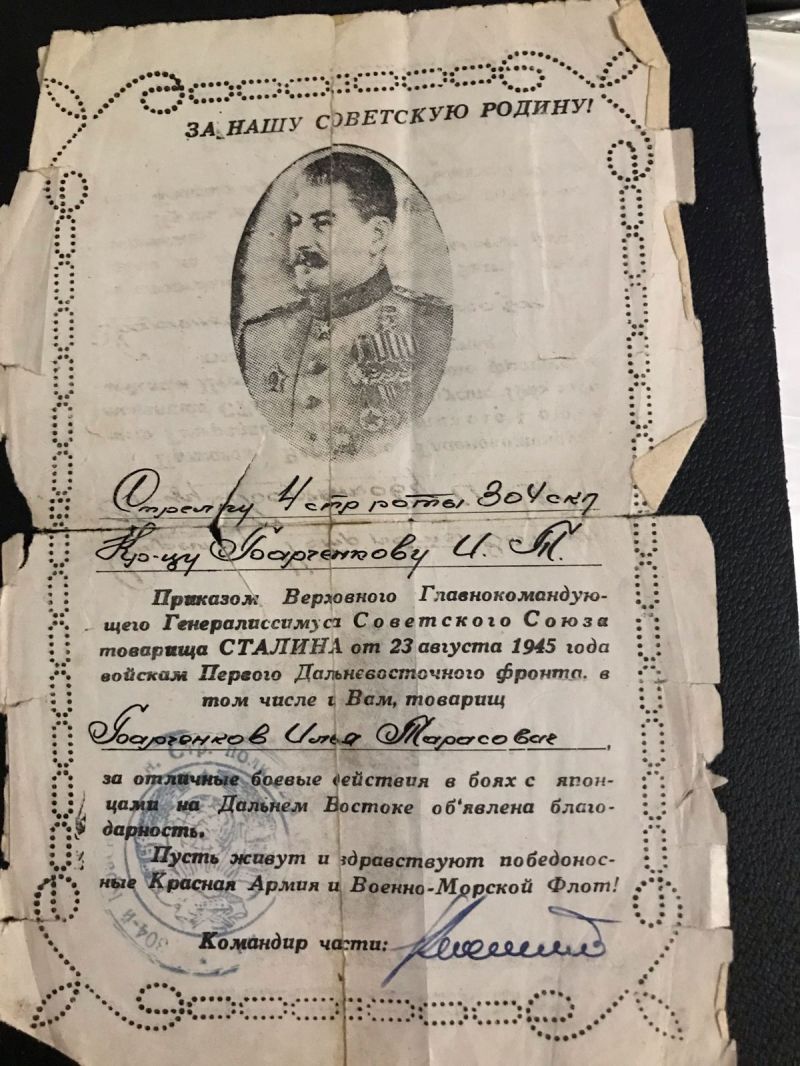 ЗА НАШУ СОВЕТСКУЮ РОДИНУ!
Стрелку 4 стр роты 304 скп
Кр-цу Гоарченкову И. Т.
Приказом Верховного Главнокомандую-
щего Генералиссимуса Советского Союза
товарища СТАЛИНА от 23 августа 1945 года
войскам Первого Дальневосточного фронта, в
том числе и Вам, товарищ
Илья Тарасович,
за отличные боевые действия в боях с япон-
цами на Дальнем Востоке об'явлена благо-
дарность.
Пусть живут и здравствуют победонос-
ные Красная Армия и Военно-Морской Флот!
Командир части:
304-й
Стр. полк